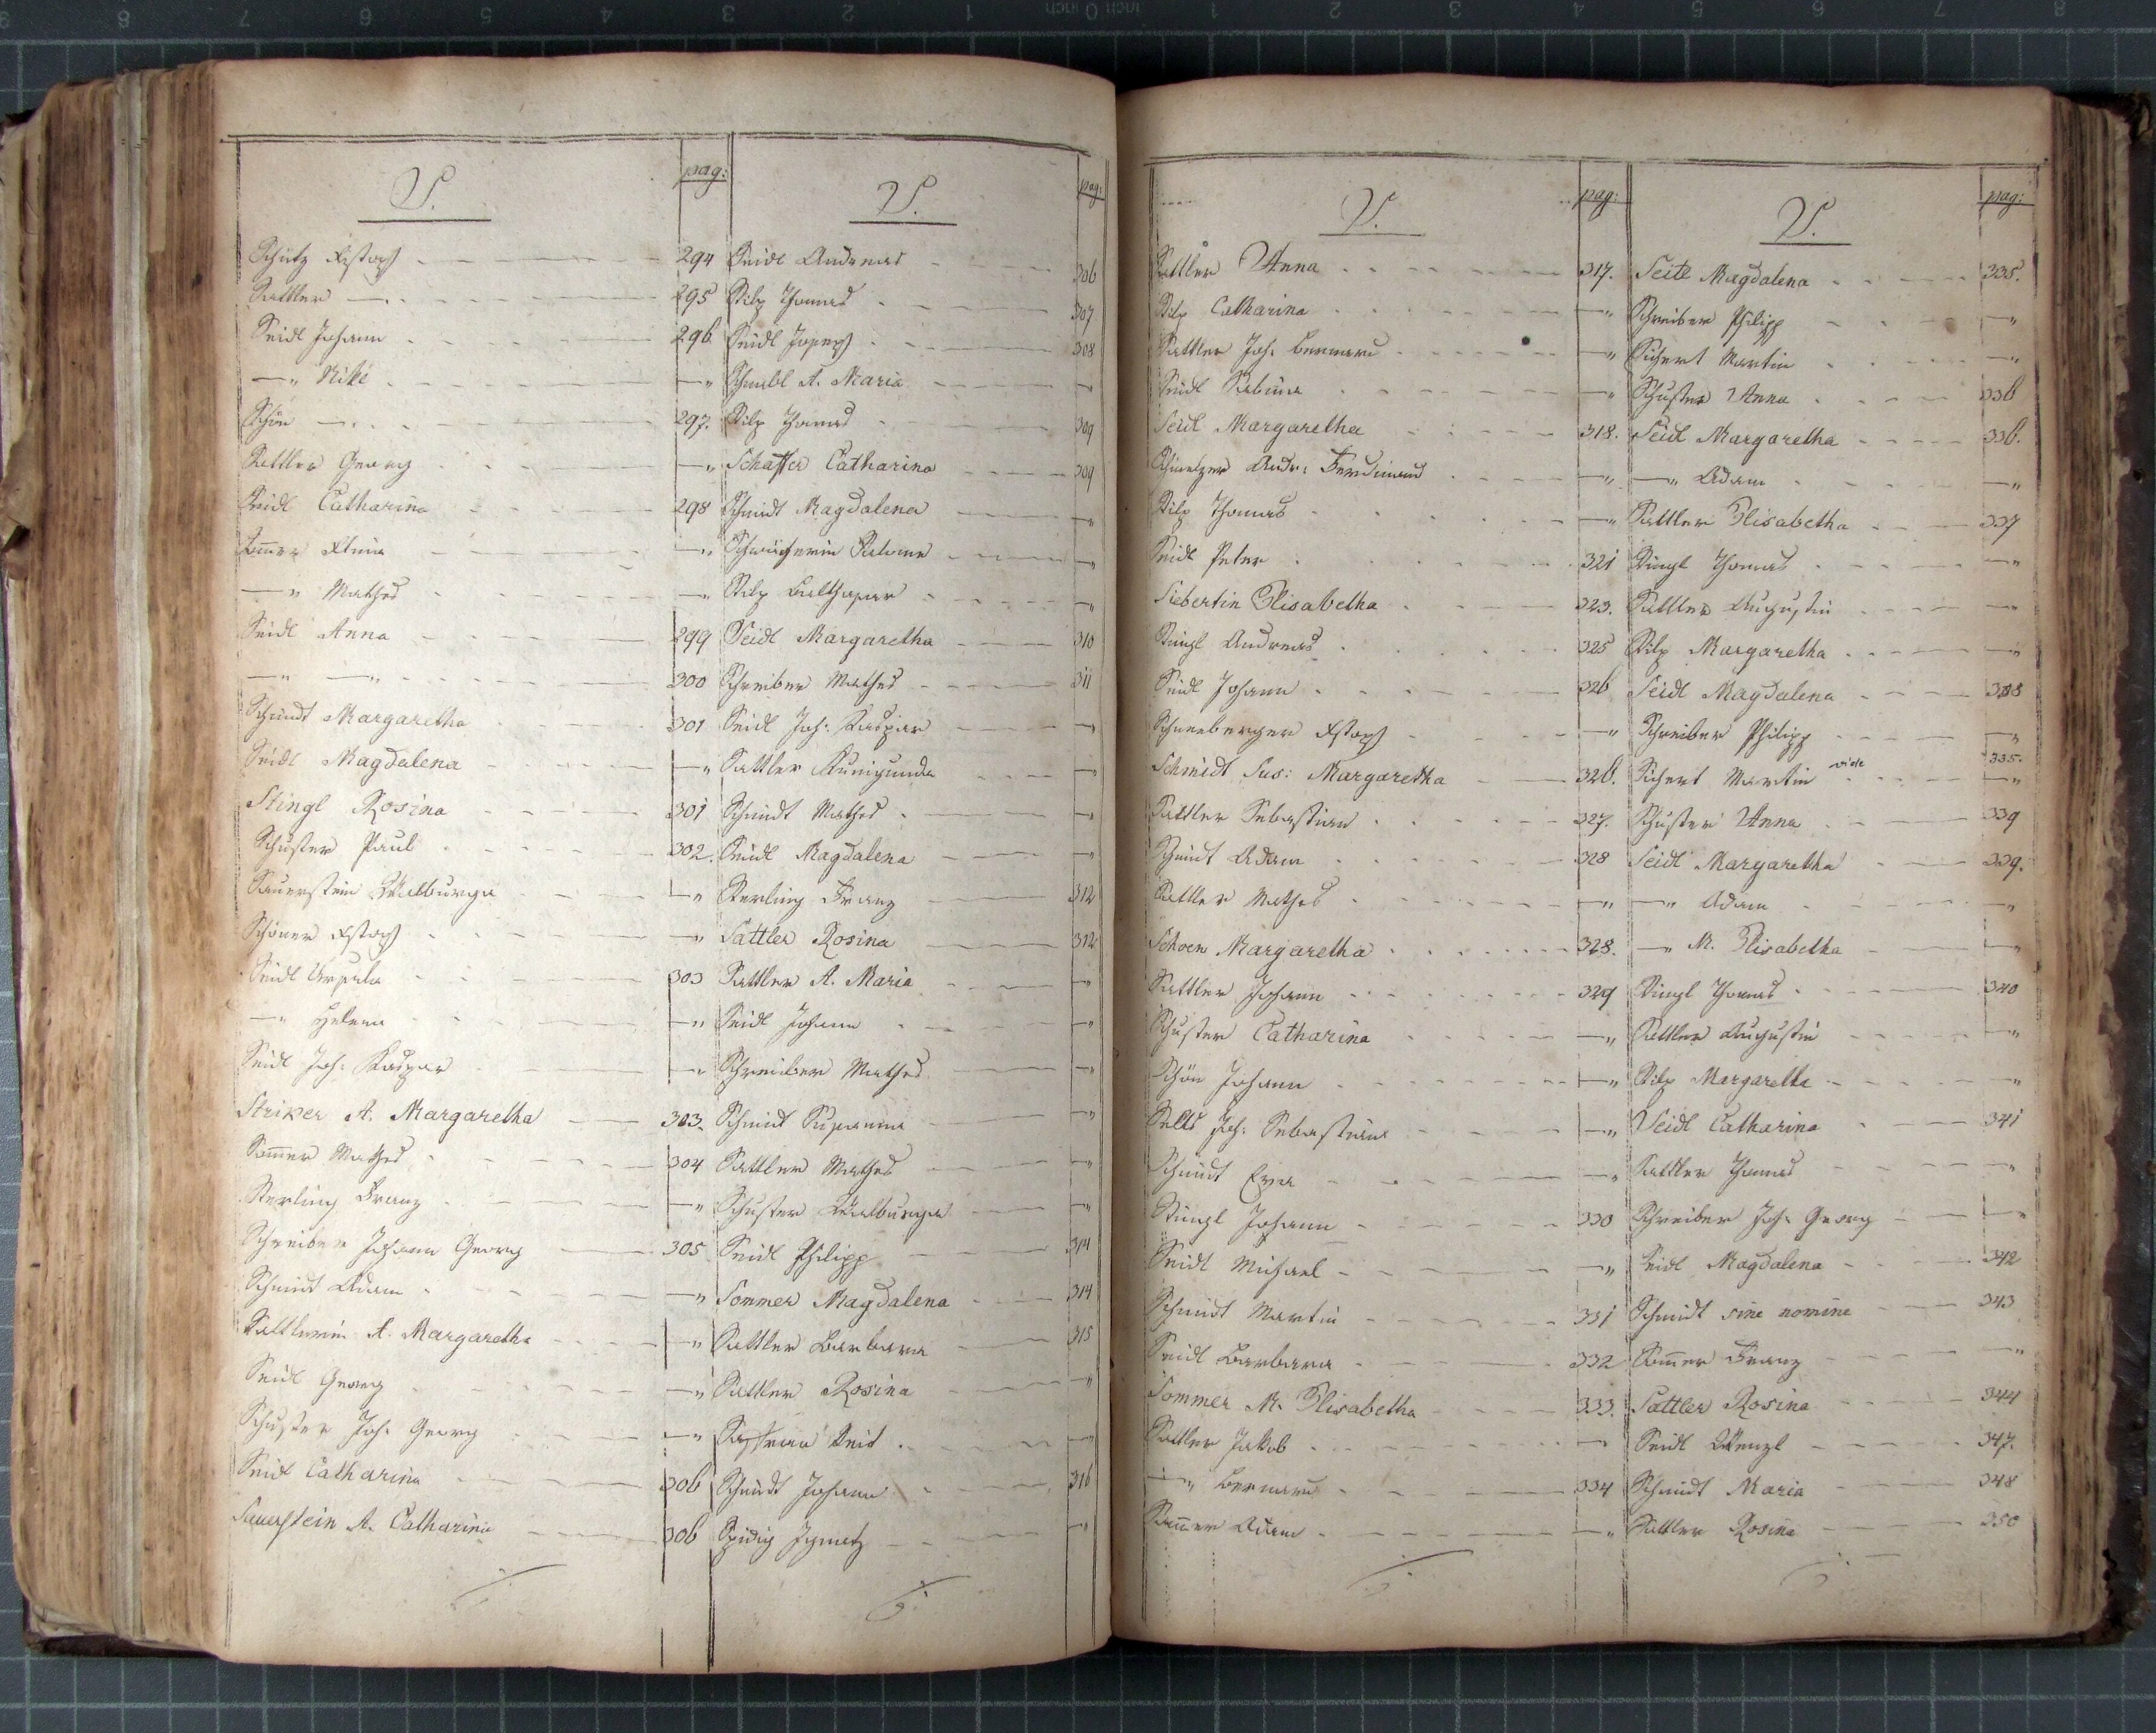 S. pag:
Schütz Xstoph 294
Sattler — 295
Seidl Johann 296
—" Niki —"
Schön — 297.
Sattler Georg —"
Seidl Catharina 298
Somer —"
—" Mathes —"
Seidl Anna 299
—" —" 300
Schmidt Margaretha 301
Seidl Magdalena —"
Stingl Rosina 301
Schuster Paul 302.
Sauerstein Walburga —"
Schöner Xstoph —"
Seidl Ursula 303
—" Helena —"
Seidl Joh: Kaspar —"
Striker A. Margaretha 303.
Som̄er Mathes 304
Sterling Franz —"
Schreiber Johann Georg 305
Schmidt Adam —"
Sattlerin A. Margaretha —"
Seidl Georg —"
Schuster Joh: Georg —"
Seidl Catharina 306
Sauerstein A. Catharina 306
S. pag:
Seidl Andreas 306
Stilp Thomas 307
Seidl Joseph 308
Schnabl A. Maria —"
Stilp Thomas 309
Schaffer Catharina 309
Schmidt Magdalena —"
—"
Stilp Balthasar —"
Seidl Margaretha 310
Schreiber Mathes 311
Seidl Joh: Kaspar —"
Sattler Kunigunda —"
Schmidt Mathes —"
Seidl Magdalena —"
Sterling Franz 312
Sattler Rosina 312
Sattler A. Maria —"
Seidl Johann —"
Schreiber Mathes —"
Schmidt Susanna —"
Sattler Mathes —"
Schuster Walburga —"
Seidl Philipp 314
Sommer Magdalena 314
Sattler Barbara 315
Sattler Rosina —"
Veit —"
Schmidt Johann 316
Ignatz —"
S. pag:
Sattler Anna 317.
Stilp Catharina —"
Sattler Joh: Bernard —"
Seidl Sabina —"
Seidl Margaretha 318.
Schmelzer Andr: Ferdinand —"
Stilp Thomas —"
Seidl Peter 321
Siebertin Elisabetha 323.
Stingl Andreas 325
Seidl Johann 326
Schneeberger Xstoph —"
Schmidt Sus: Margaretha 326.
Sattler Sebastian 327.
Schmidt Adam 328
Sattler Mathes —"
Schoen Margaretha 328.
Sattler Johann 329
Schuster Catharina —"
Schön Johann —"
Joh: Sebastian —"
Schmidt Eva —"
Stingl Johann 330
Seidl Michael —"
Schmidt Martin 331
Seidl Barbara 332
Sommer M. Elisabetha 333.
Sattler Jakob —"
—" Bernard 334
Som̄er Adam —"
S. pag:
Seitl Magdalena 335.
Schreiber Philipp —"
Sichert Martin —"
Schuster Anna 336
Seidl Margaretha 336.
—" Adam —"
Sattler Elisabetha 337
Stingl Thomas —"
Sattler Augustin —"
Stilp Margaretha —"
Seidl Magdalena 338
Schreiber Philipp —"
Sichert Martin vide 335. —"
Schuster Anna 339
Seidl Margaretha 339.
—" Adam —"
—" M. Elisabetha —"
Stingl Thomas 340
Sattler Augustin —"
Stilp Margaretha —"
Seidl Catharina 341
Sattler Thomas —"
Schreiber Joh: Georg —"
Seidl Magdalena 342
Schmidt sine nomine 343
Som̄er Franz —"
Sattler Rosina 344
Seidl Wenzl 347.
Schmidt Maria 348
Sattler Rosina 350